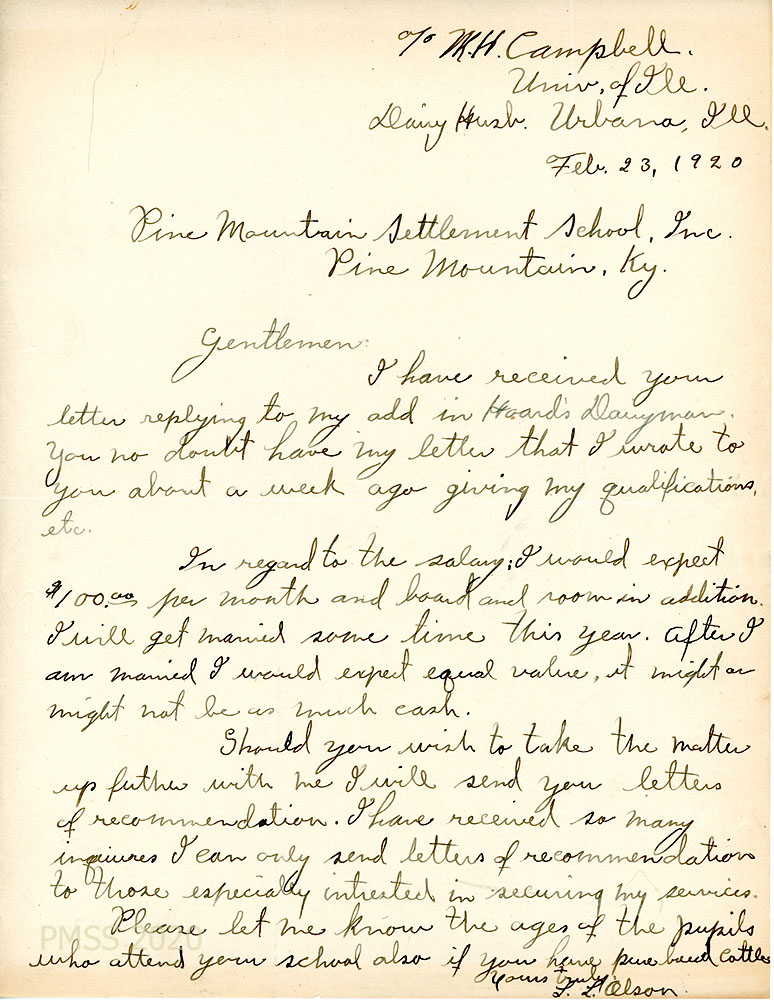 c/o W.H. Campbell.
Univ. of Ill.
Dairy Husb. Urbana, Ill.
Feb. 23, 1920
Pine Mountain Settlement School, Inc.
Pine Mountain, Ky.
Gentlemen:
I have received your
letter replying to my add in Hoard's Dairyman.
You no doubt have my letter that I wrote to
you about a week ago giving my qualifications,
etc.
In regard to the salary; I would expect
$100.00 per month and board and room in addition.
I will get married some time this year. After I
am married I would expect equal value, it might or
might not be as much cash.
Should you wish to take the matter
up futher with me I will send you letters
of recommendation. I have received so many
inquiures I can only send letters of recommendation
to those especially intrested in securing my services.
Please let me know the ages of the pupils
who attend your school also if you have pure bred cattle
Yours truly
Olson.
PMSS 2020